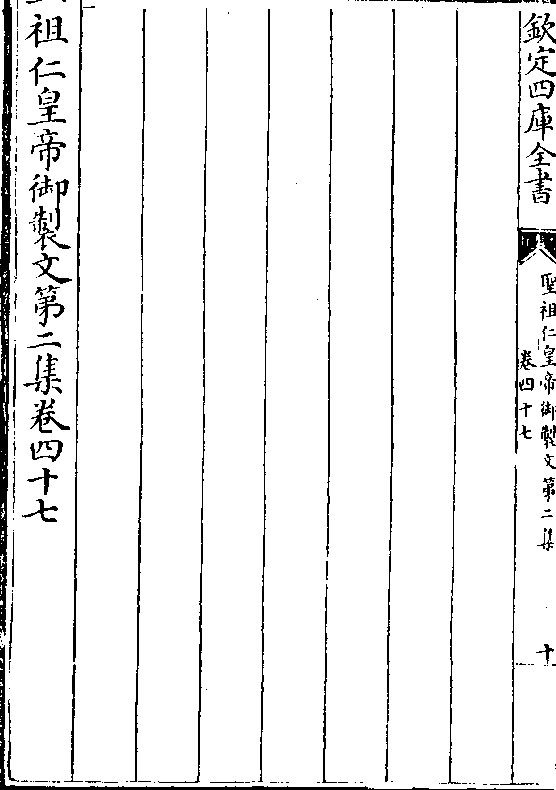 欽定四庫全書
聖祖仁皇帝御製文第二集
卷四十七
十
祖仁皇帝御製文第二集卷四十七